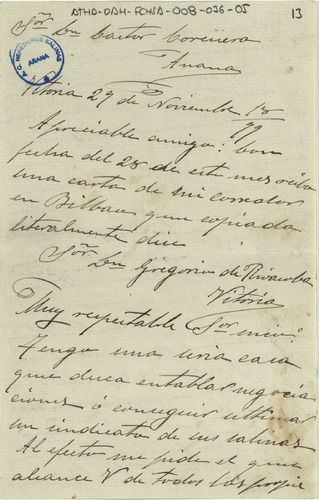 ATHA-DAH-FCHSA-008-036-05
13
Sor Dn Castor Corcuera
Anana
A.C. HEREDEROS SALINAS
AÑANA
Vitoria 29 de Noviembre 18
99
Apreciable amigo: Con
fecha del 28 de este mes recibo
una carta de mi corredor
en Bilbao que copiada
literalmente dice
Sor Dn Gregorio de
Vitoria
Muy respetable Sor mio:
Tengo una seria casa
que desea entablar negocia
ciones ó conseguir ultimar
un sindicato de sus salinas
Al efecto me pide el que
alcance V de todos los propie